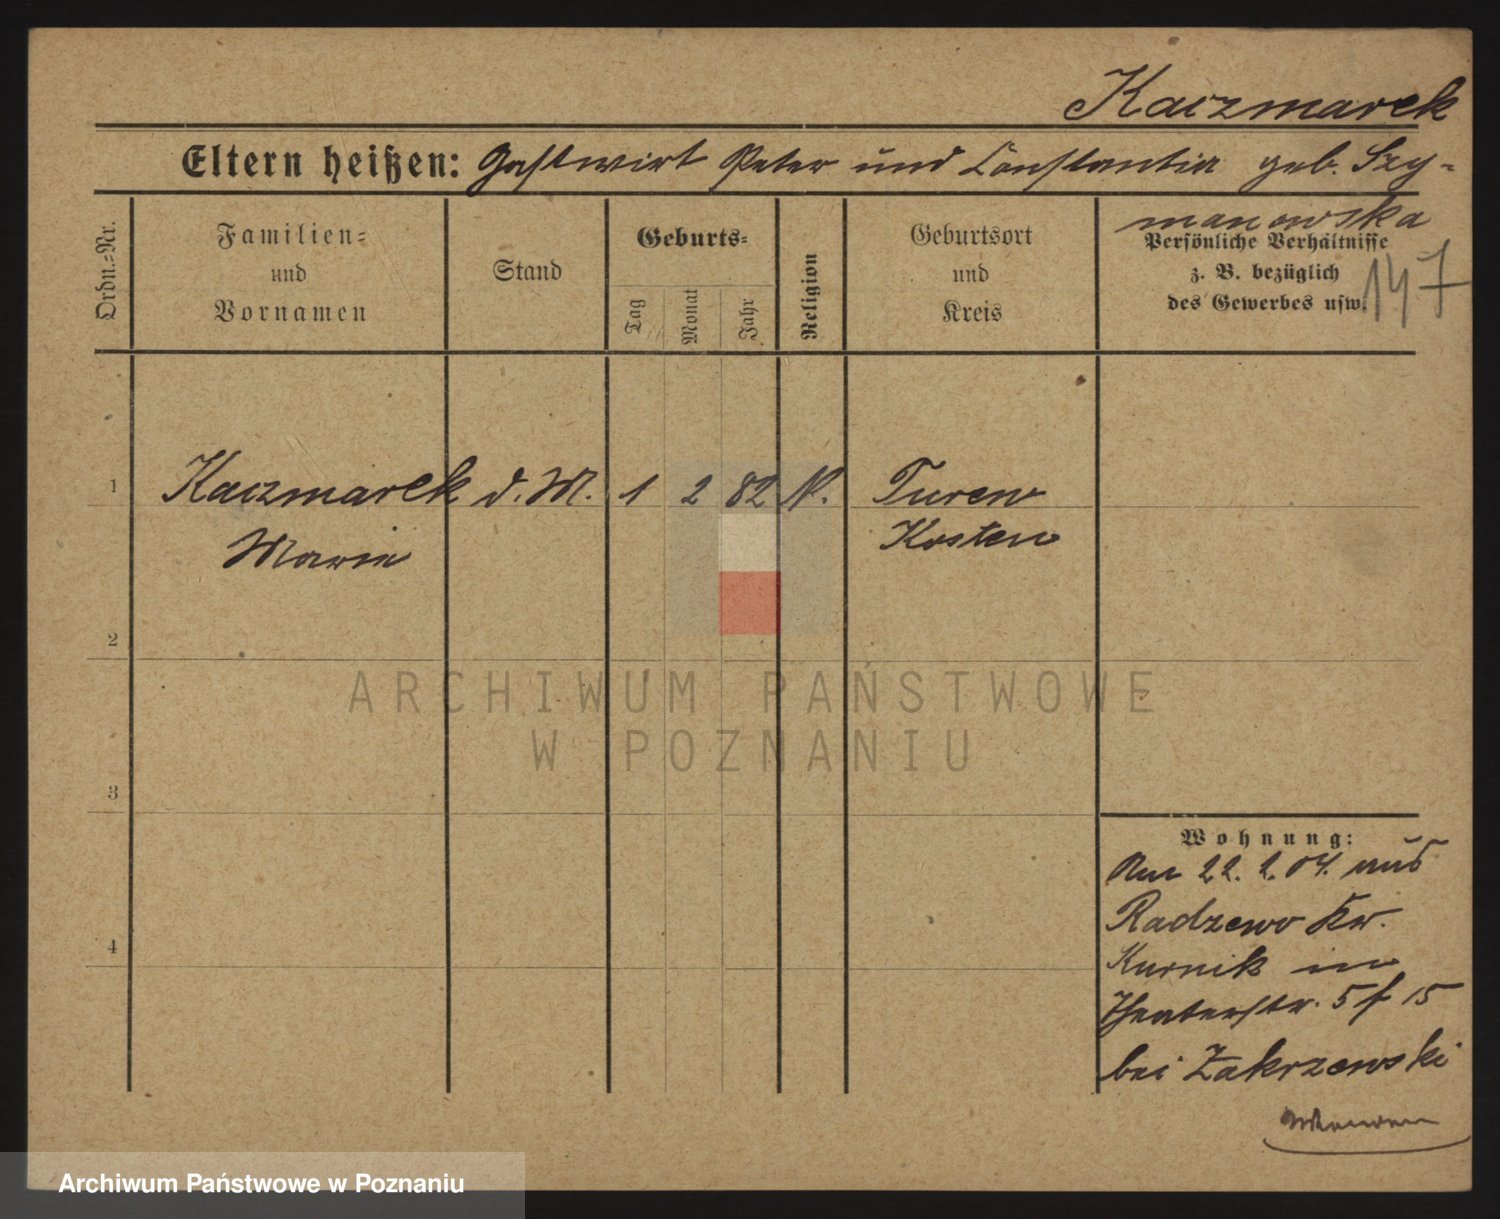 Kaczmarek
Eltern heißen: Gastwirt Peter und Constantia geb. Szy-
manowska
Ordn.-Nr.
Familien-
und
Vornamen
Stand
Geburts-
Tag
Monat
Jahr
Religion
Geburtsort
und
Kreis
Persönliche Verhältnisse
z. B. bezüglich
des Gewerbes usw.
147
1
Kaczmarek d. M. 1 2 82 K. Turew
Marie Kosten
2
3
4
Wohnung:
Am 22. 2. 04. aus
Radzewo Kr.
Kurnik in
Theaterstr. 5 f 15
bei Zakrzewski
ARCHIWUM PAŃSTWOWE
W POZNANIU
Archiwum Państwowe w Poznaniu